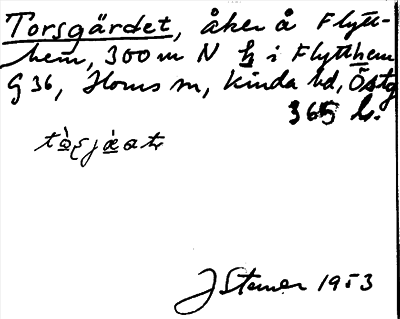 Torsgärdet, åker å Flytt-
hem, 300 m N h i Flytthem
G 36, Horns sn, Kinda hd, Östg
365 h.
J Stener 1953